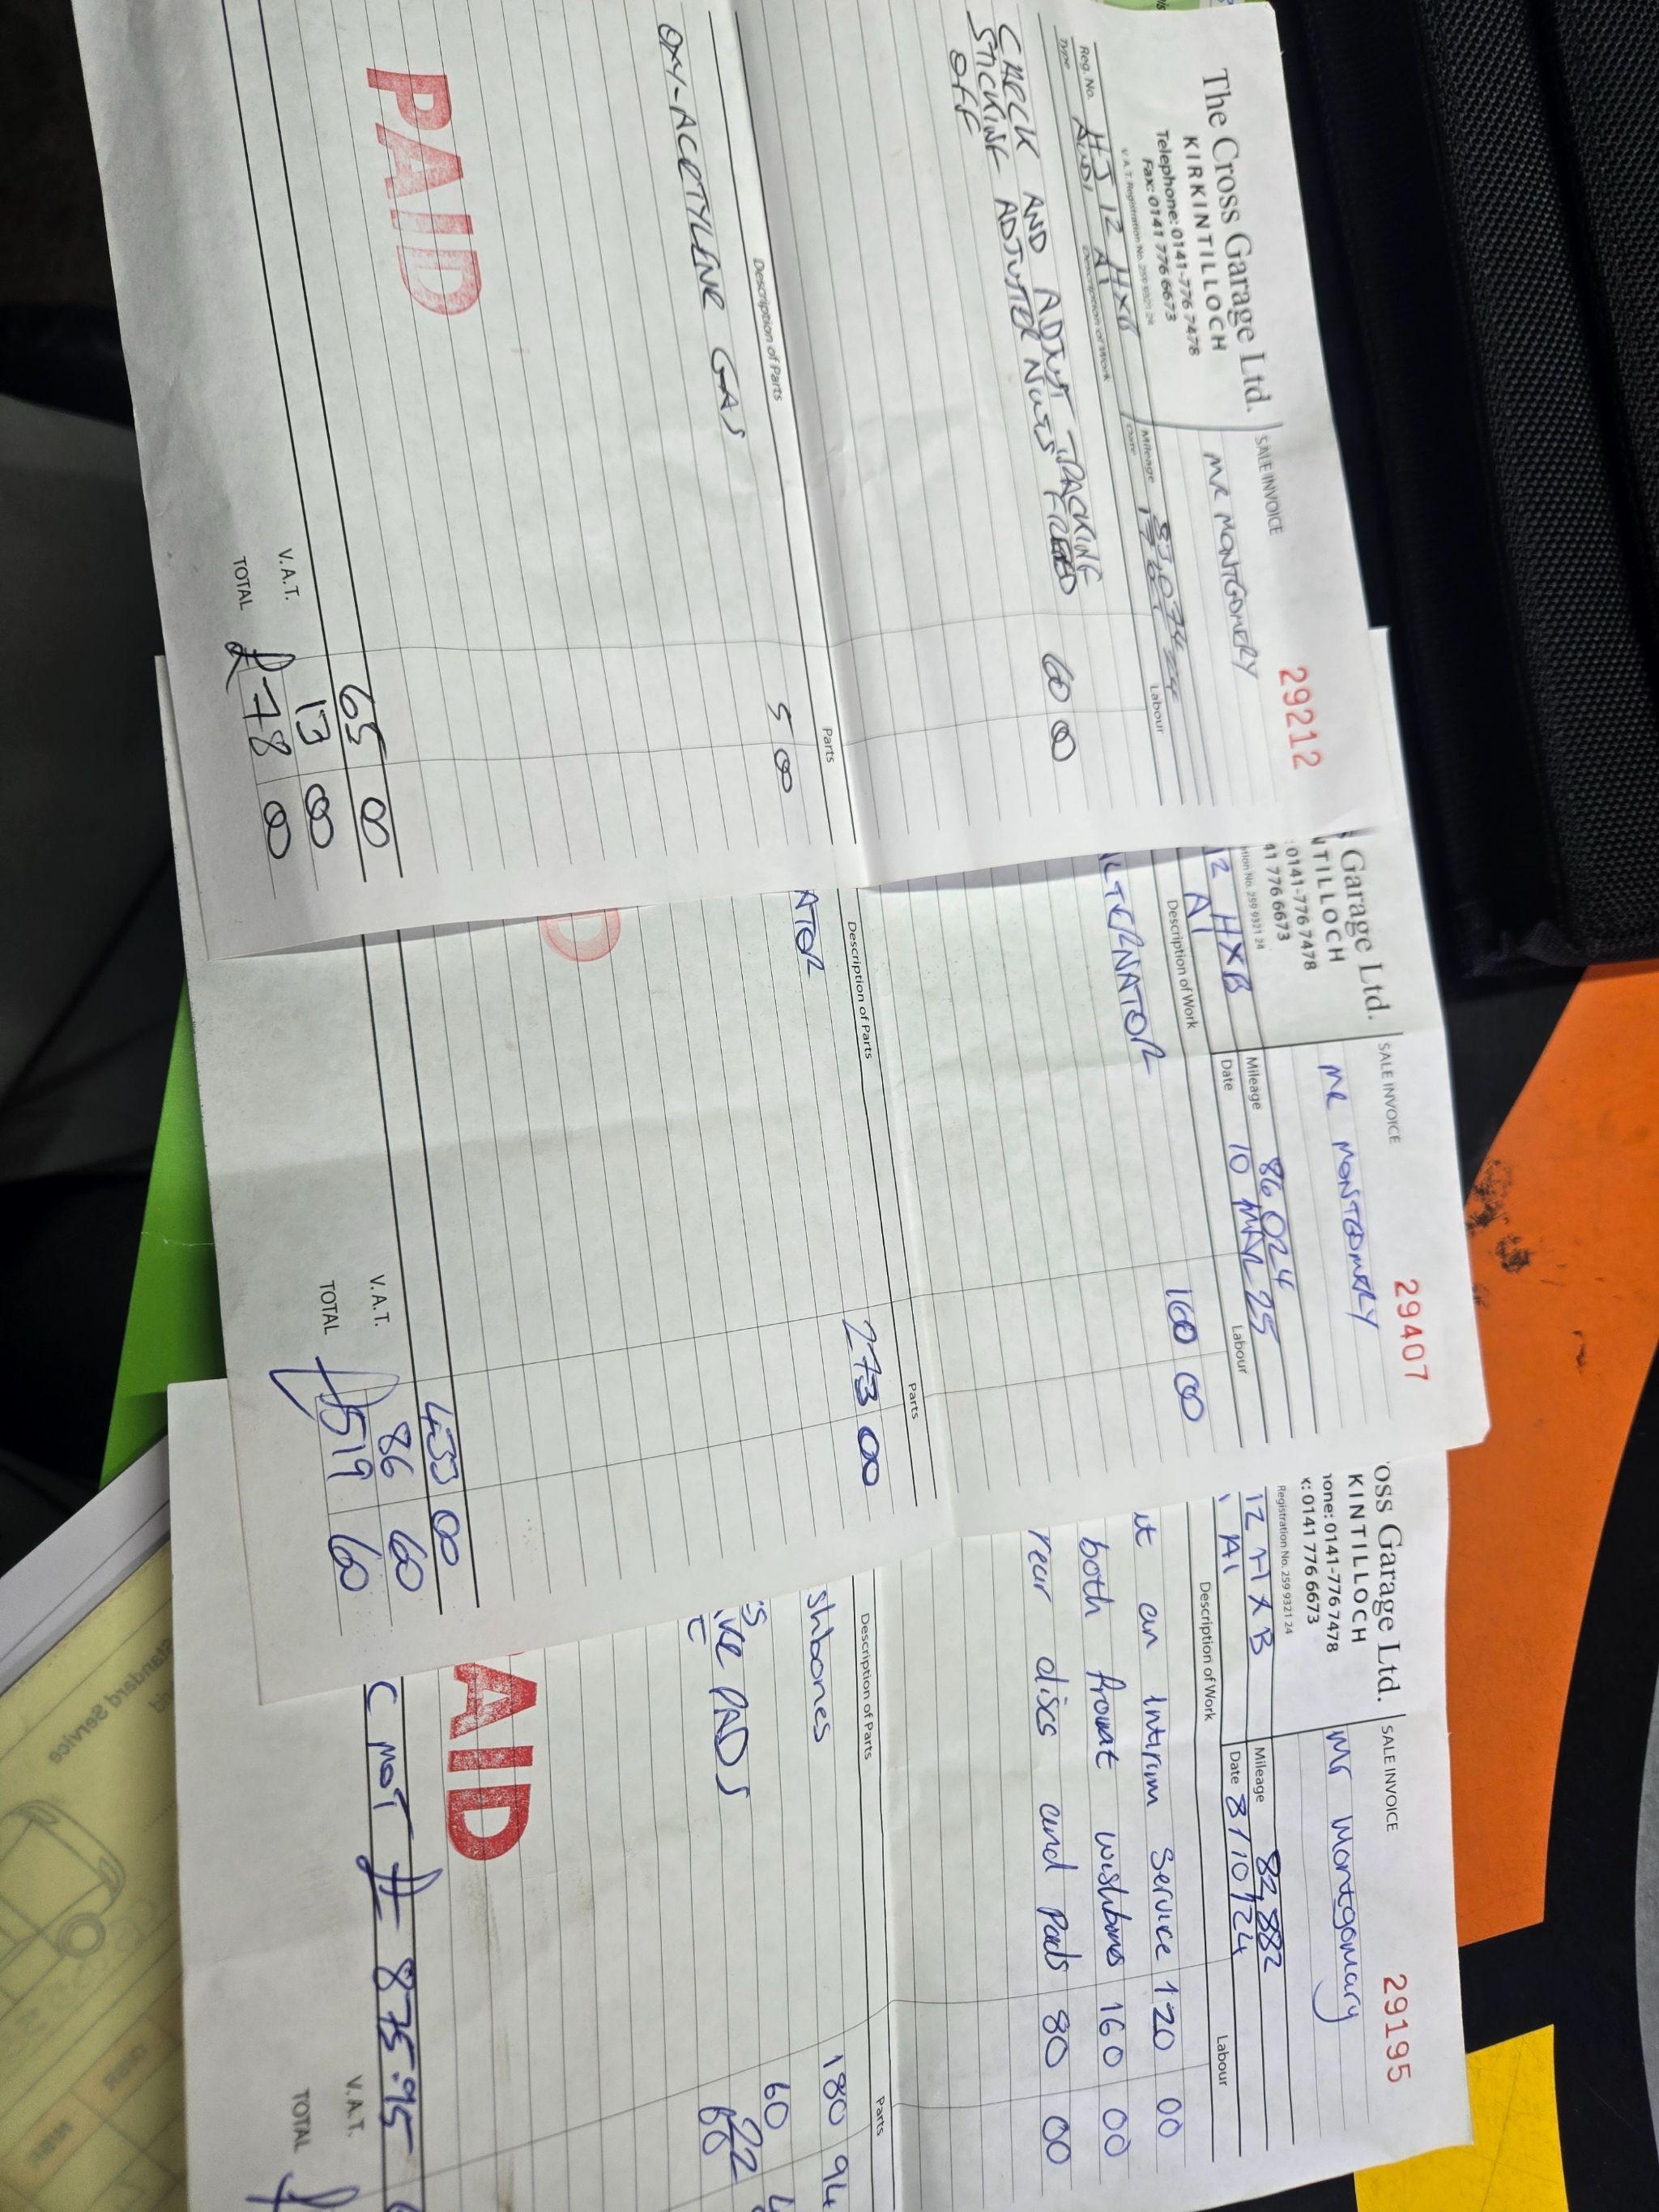 The Cross Garage Ltd.
KIRKINTILLOCH
Telephone: 0141-776 7478
Fax: 0141 776 6673
V.A.T. Registration No. 259 9321 24
SALE INVOICE
29212
MR MONTGOMERY
Reg. No. HJ 12 HXB
Mileage
Type AUDI A1
Date
Description of Work
Labour
CHECK AND ADJUST TRACKING 60 00
STICKING ADJUSTER NUTS FREED
OFF
Description of Parts
Parts
OXY-ACETYLENE GAS 5 00
PAID
65 00
V.A.T. 13 00
TOTAL £78 00
Garage Ltd.
NTILLOCH
: 0141-776 7478
41 776 6673
tion No. 259 9321 24
SALE INVOICE
29407
MR MONTGOMERY
12 HXB
Mileage 86024
A1
Date 10 MAR 25
Description of Work
Labour
LTERNATOR 160 00
Description of Parts
Parts
ATOR 273 00
D
433 00
V.A.T. 86 60
TOTAL £519 60
oss Garage Ltd.
KINTILLOCH
one: 0141-776 7478
x: 0141 776 6673
Registration No. 259 9321 24
SALE INVOICE
29195
Mr Montgomary
12 HXB
Mileage 82,882
A1
Date 8/10/24
Description of Work
Labour
ut an Intrim Service 120 00
both front wishbones 160 00
rear discs and Pads 80 00
Description of Parts
Parts
shbones 180 94
ES 60
KE PADS
PAID
C MOT £ 875.95
V.A.T.
TOTAL £
Standard Service